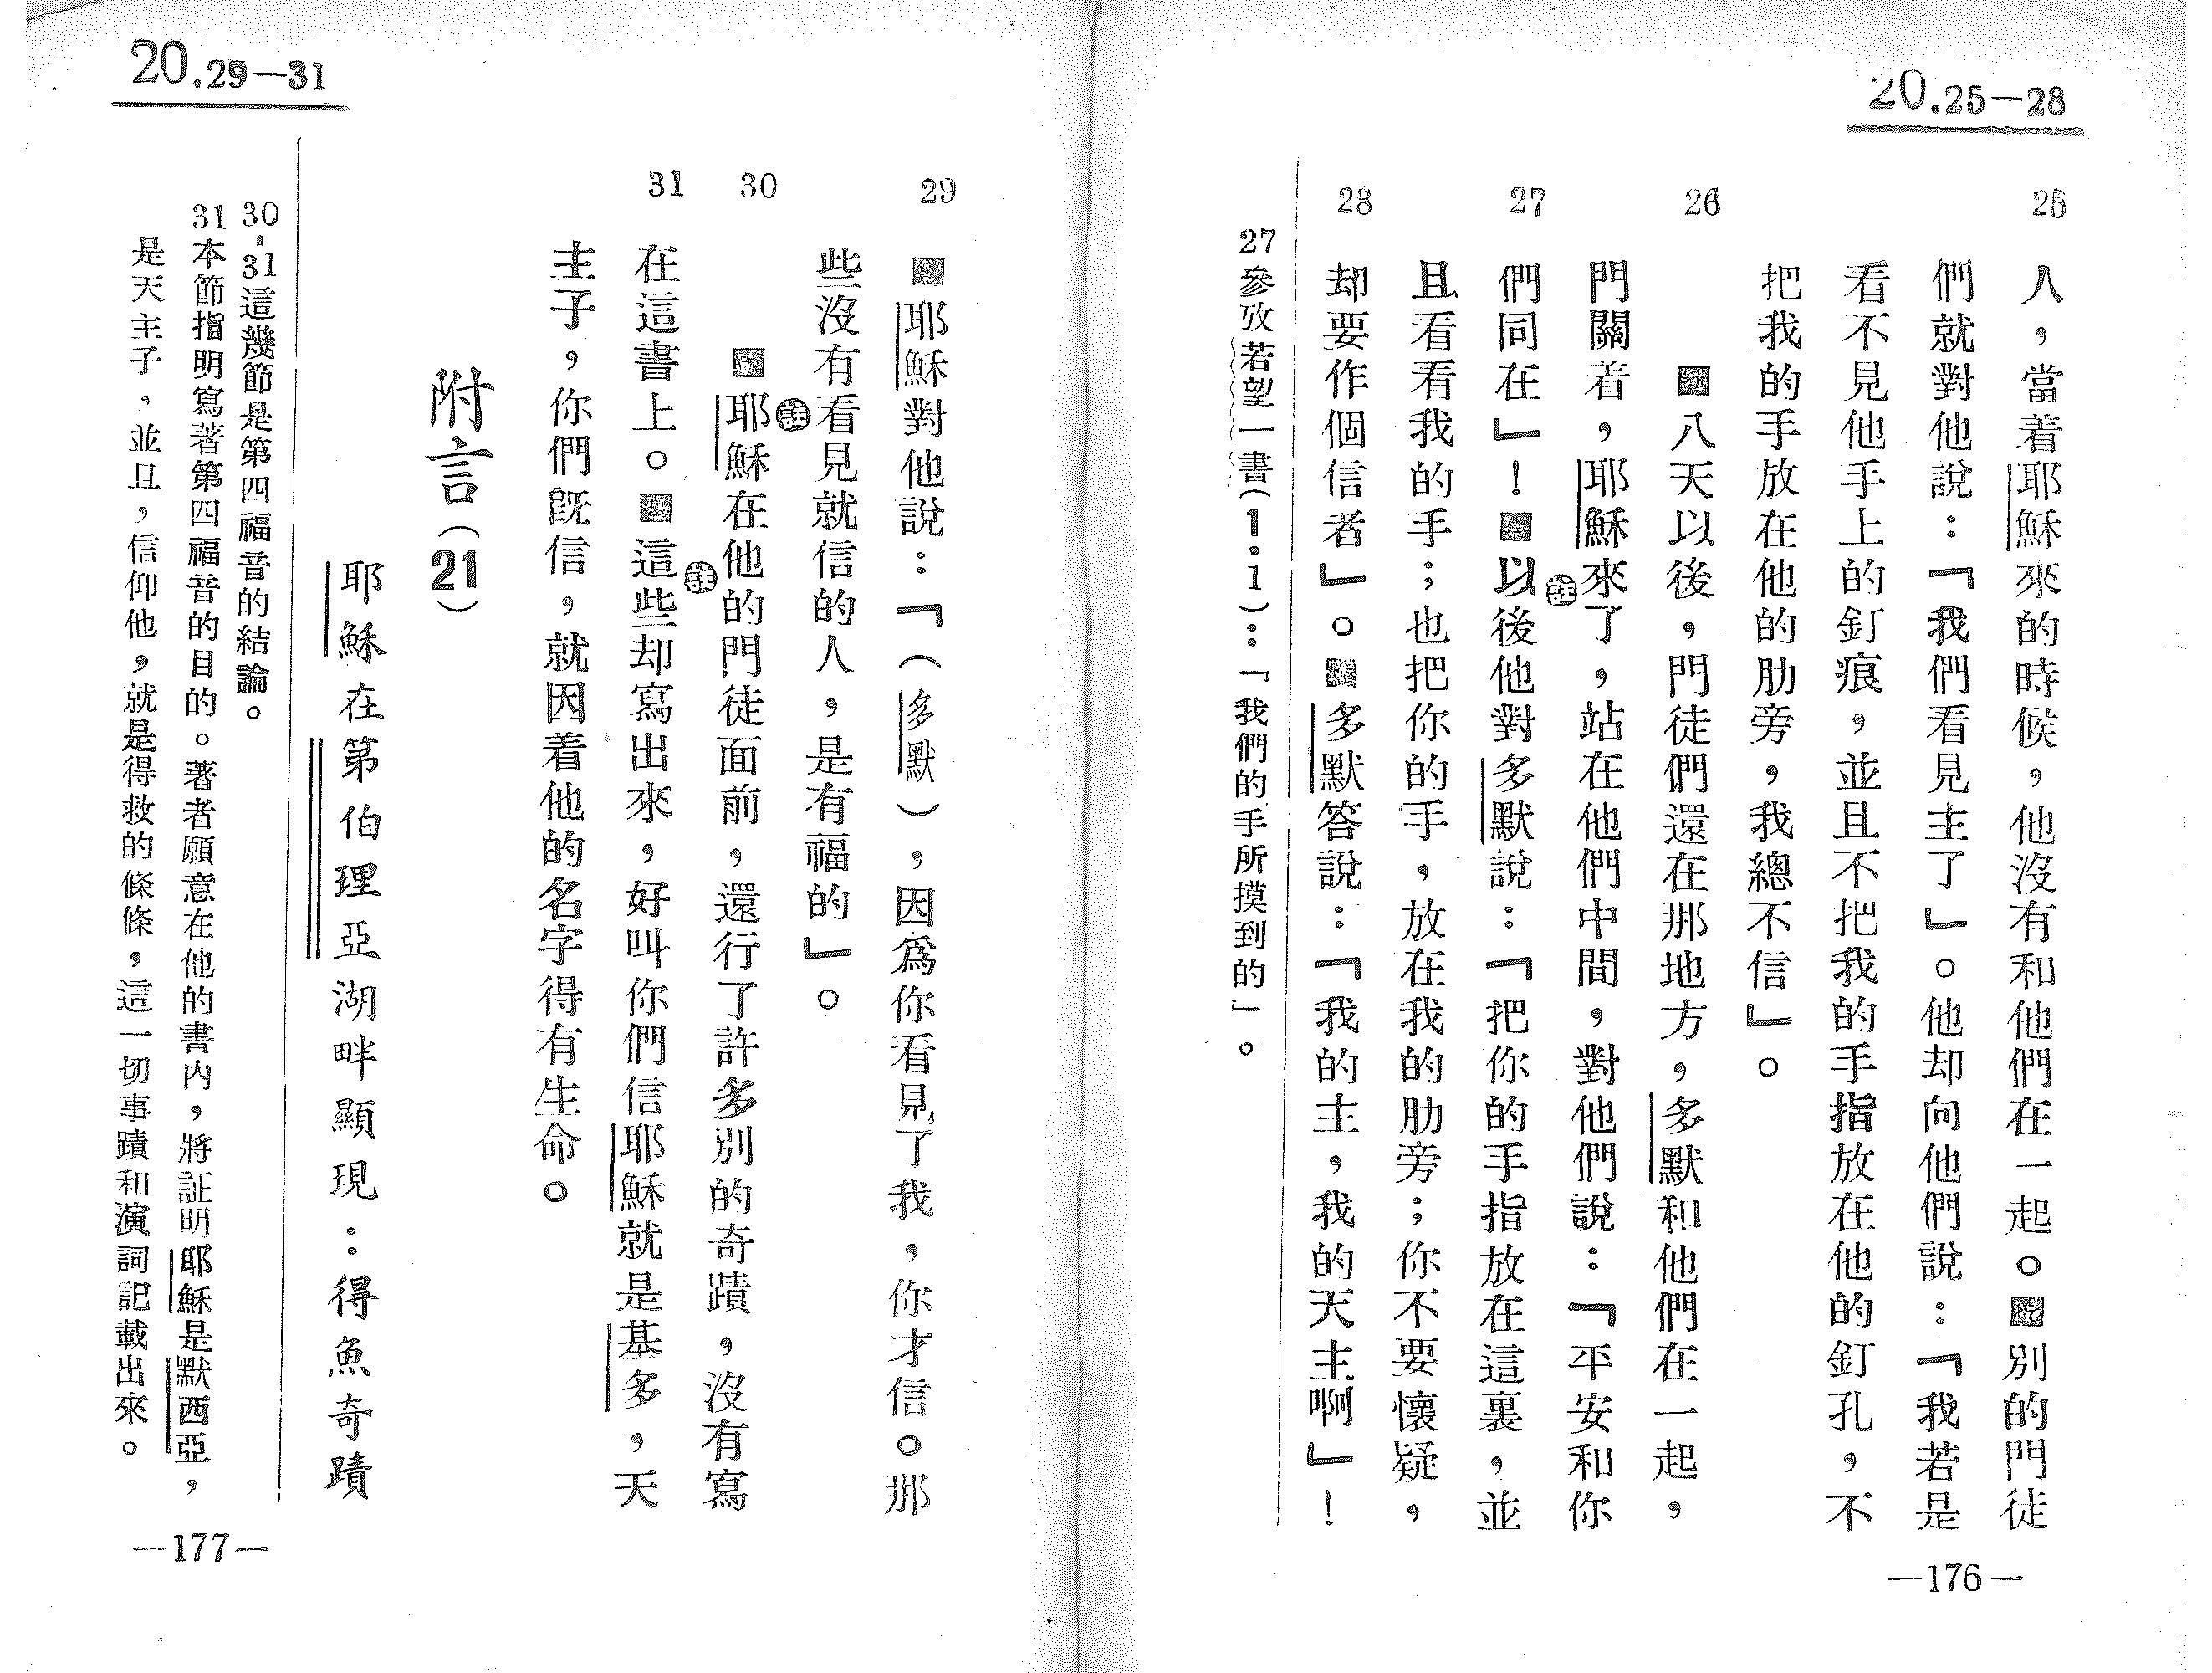 20.25—28
25
人，當着耶穌來的時候，他沒有和他們在一起。別的門徒
們就對他說：「我們看見主了」。他却向他們說：「我若是
看不見他手上的釘痕，並且不把我的手指放在他的釘孔，不
把我的手放在他的肋旁，我總不信」。
26
八天以後，門徒們還在那地方，多默和他們在一起，
門關着，耶穌來了，站在他們中間，對他們說：「平安和你
27
們同在」！以後他對多默說：「把你的手指放在這裏，並
註
且看看我的手；也把你的手，放在我的肋旁；你不要懷疑，
28
却要作個信者」。多默答說：「我的主，我的天主啊」！
27參攷若望一書（1．1）：「我們的手所摸到的」。
—176—
20.29—31
29
耶穌對他說：「（多默），因爲你看見了我，你才信。那
些沒有看見就信的人，是有福的」。
30
耶穌在他的門徒面前，還行了許多別的奇蹟，沒有寫
註
31
在這書上。這些却寫出來，好叫你們信耶穌就是基多，天
註
主子，你們旣信，就因着他的名字得有生命。
附言（21）
耶穌在第伯理亞湖畔顯現：得魚奇蹟
30-31這幾節是第四福音的結論。
31本節指明寫著第四福音的目的。著者願意在他的書內，將証明耶穌是默西亞，
是天主子，並且，信仰他，就是得救的條條，這一切事蹟和演詞記載出來。
—177—